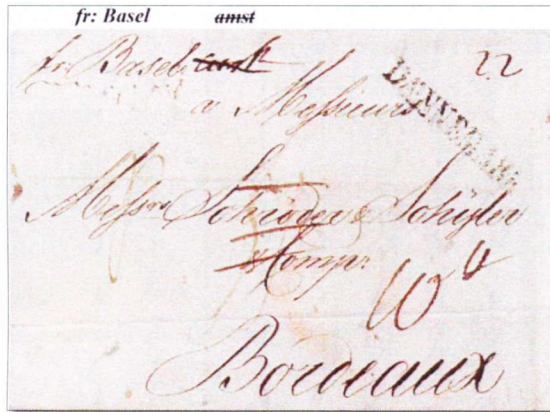 fr: Basel ~~amst~~
fr: Basel ~~amst~~ 22
a Messieurs
Messrs Schröder & Schÿler
& Comp:
10
Bordeaux